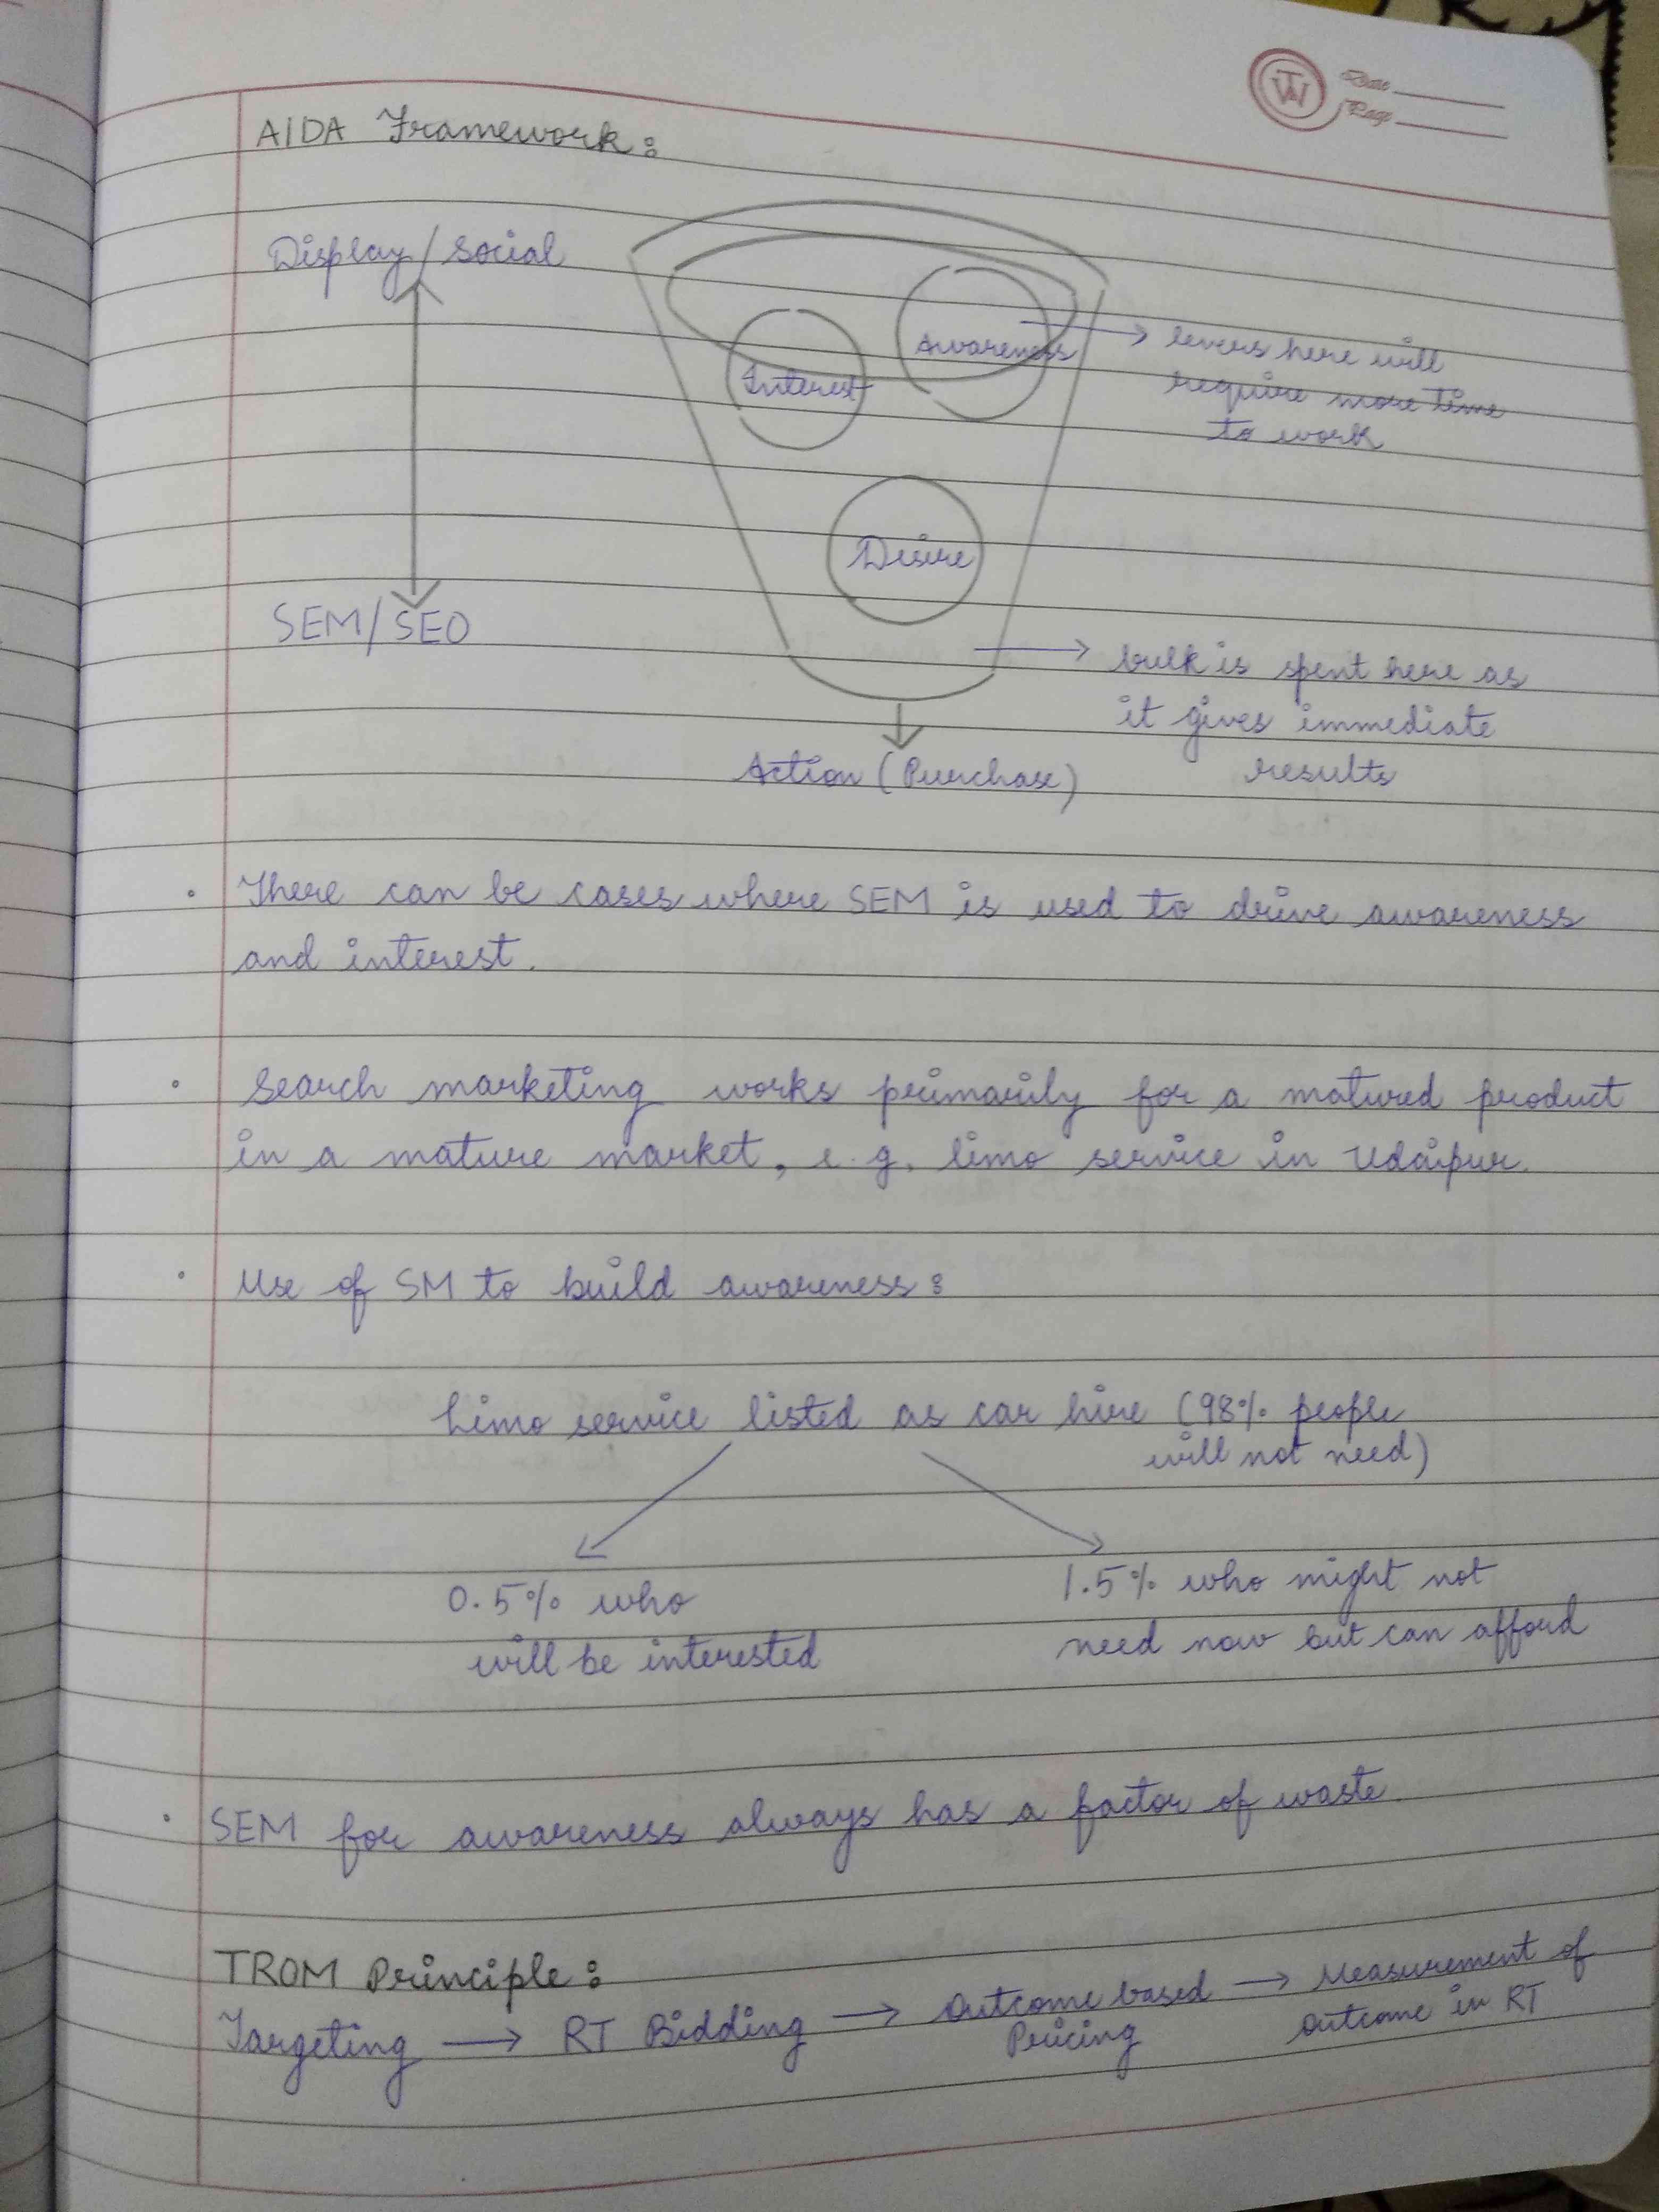 TW
Date
Page
AIDA Framework:
Display/Social
Awareness
Interest
levers here will
require more time
to work
Desire
SEM/SEO
bulk is spent here as
it gives immediate
results
Action (Purchase)
• There can be cases where SEM is used to drive awareness
and interest.
• Search marketing works primarily for a matured product
in a mature market, e.g. limo service in Udaipur.
• Use of SM to build awareness:
Limo service listed as car hire (98% people
will not need)
0.5% who
will be interested
1.5% who might not
need now but can afford
• SEM for awareness always has a factor of waste.
TROM Principle:
Targeting → RT Bidding → Outcome based → Measurement of
Pricing
outcome in RT